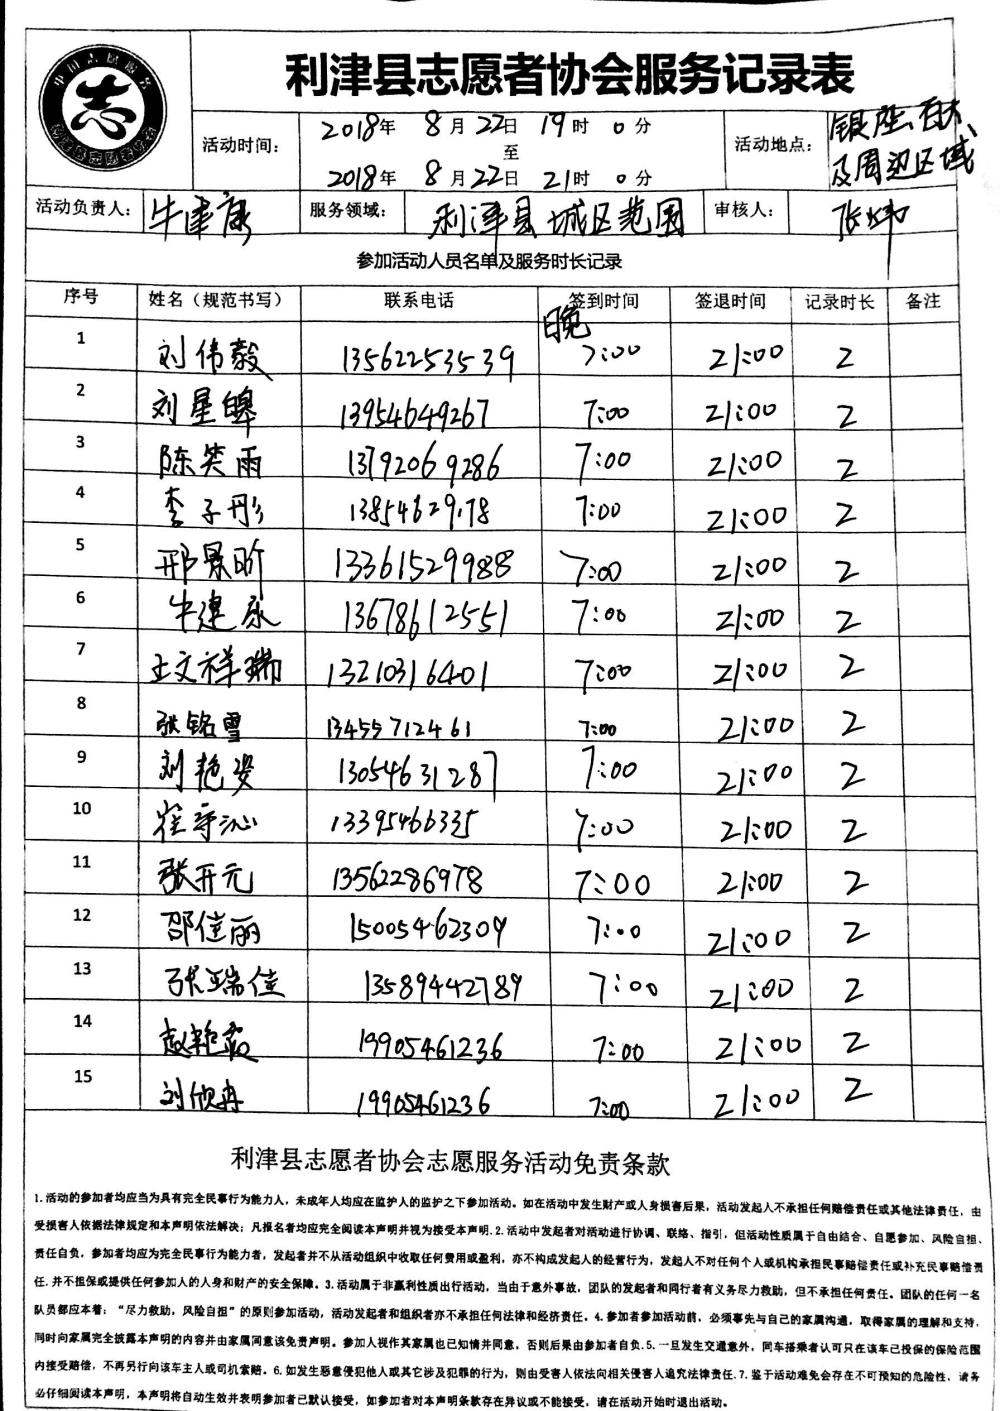 中国志愿服务
志
利津县志愿者协会服务记录表
活动时间:
2018年 8月22日 19时 0分
至
2018年 8月22日 21时 0分
活动地点:
银座、百大、
及周边区域
活动负责人: 牛建康 服务领域: 利津县城区范围 审核人: 张炜
参加活动人员名单及服务时长记录
序号 姓名(规范书写) 联系电话 签到时间 签退时间 记录时长 备注
晚
1 刘伟毅 13562253539 7:00 21:00 2
2 刘星皞 13954649267 7:00 21:00 2
3 陈笑雨 13792069286 7:00 21:00 2
4 李子彤 13854629178 7:00 21:00 2
5 邢景昕 13361529988 7:00 21:00 2
6 牛建永 13678612551 7:00 21:00 2
7 王文祥瑞 13210316401 7:00 21:00 2
8 张铭雪 13455712461 7:00 21:00 2
9 刘艳姿 13054631287 7:00 21:00 2
10 崔宇沁 13395466335 7:00 21:00 2
11 张开元 13562286978 7:00 21:00 2
12 邵佳丽 15005462309 7:00 21:00 2
13 张瑞佳 13589442789 7:00 21:00 2
14 赵艳茹 19905461236 7:00 21:00 2
15 刘欣冉 19905461236 7:00 21:00 2
利津县志愿者协会志愿服务活动免责条款
1.活动的参加者均应当为具有完全民事行为能力人，未成年人均应在监护人的监护之下参加活动。如在活动中发生财产或人身损害后果，活动发起人不承担任何赔偿责任或其他法律责任，由
受损害人依据法律规定和本声明依法解决；凡报名者均应完全阅读本声明并视为接受本声明.2.活动中发起者对活动进行协调、联络、指引，但活动性质属于自由结合、自愿参加、风险自担、
责任自负，参加者均应为完全民事行为能力者，发起者并不从活动组织中收取任何费用或盈利，亦不构成发起人的经营行为，发起人不对任何个人或机构承担民事赔偿责任或补充民事赔偿责
任.并不担保或提供任何参加人的人身和财产的安全保障。3.活动属于非赢利性质出行活动，当由于意外事故，团队的发起者和同行者有义务尽力救助，但不承担任何责任。团队的任何一名
队员都应本着：“尽力救助，风险自担”的原则参加活动，活动发起者和组织者亦不承担任何法律和经济责任。4.参加者参加活动前，必须事先与自己的家属沟通，取得家属的理解和支持，
同时向家属完全披露本声明的内容并由家属同意该免责声明。参加人视作其家属也已知情并同意，否则后果由参加者自负.5.一旦发生交通意外，同车搭乘者认可只在该车已投保的保险范围
内接受赔偿，不再另行向该车主人或司机索赔。6.如发生恶意侵犯他人或其它涉及犯罪的行为，则由受害人依法向相关侵害人追究法律责任。7.鉴于活动难免会存在不可预知的危险性，请务
必仔细阅读本声明，本声明将自动生效并表明参加者已默认接受，如参加者对本声明条款存在异议或不能接受，请在活动开始时退出活动。